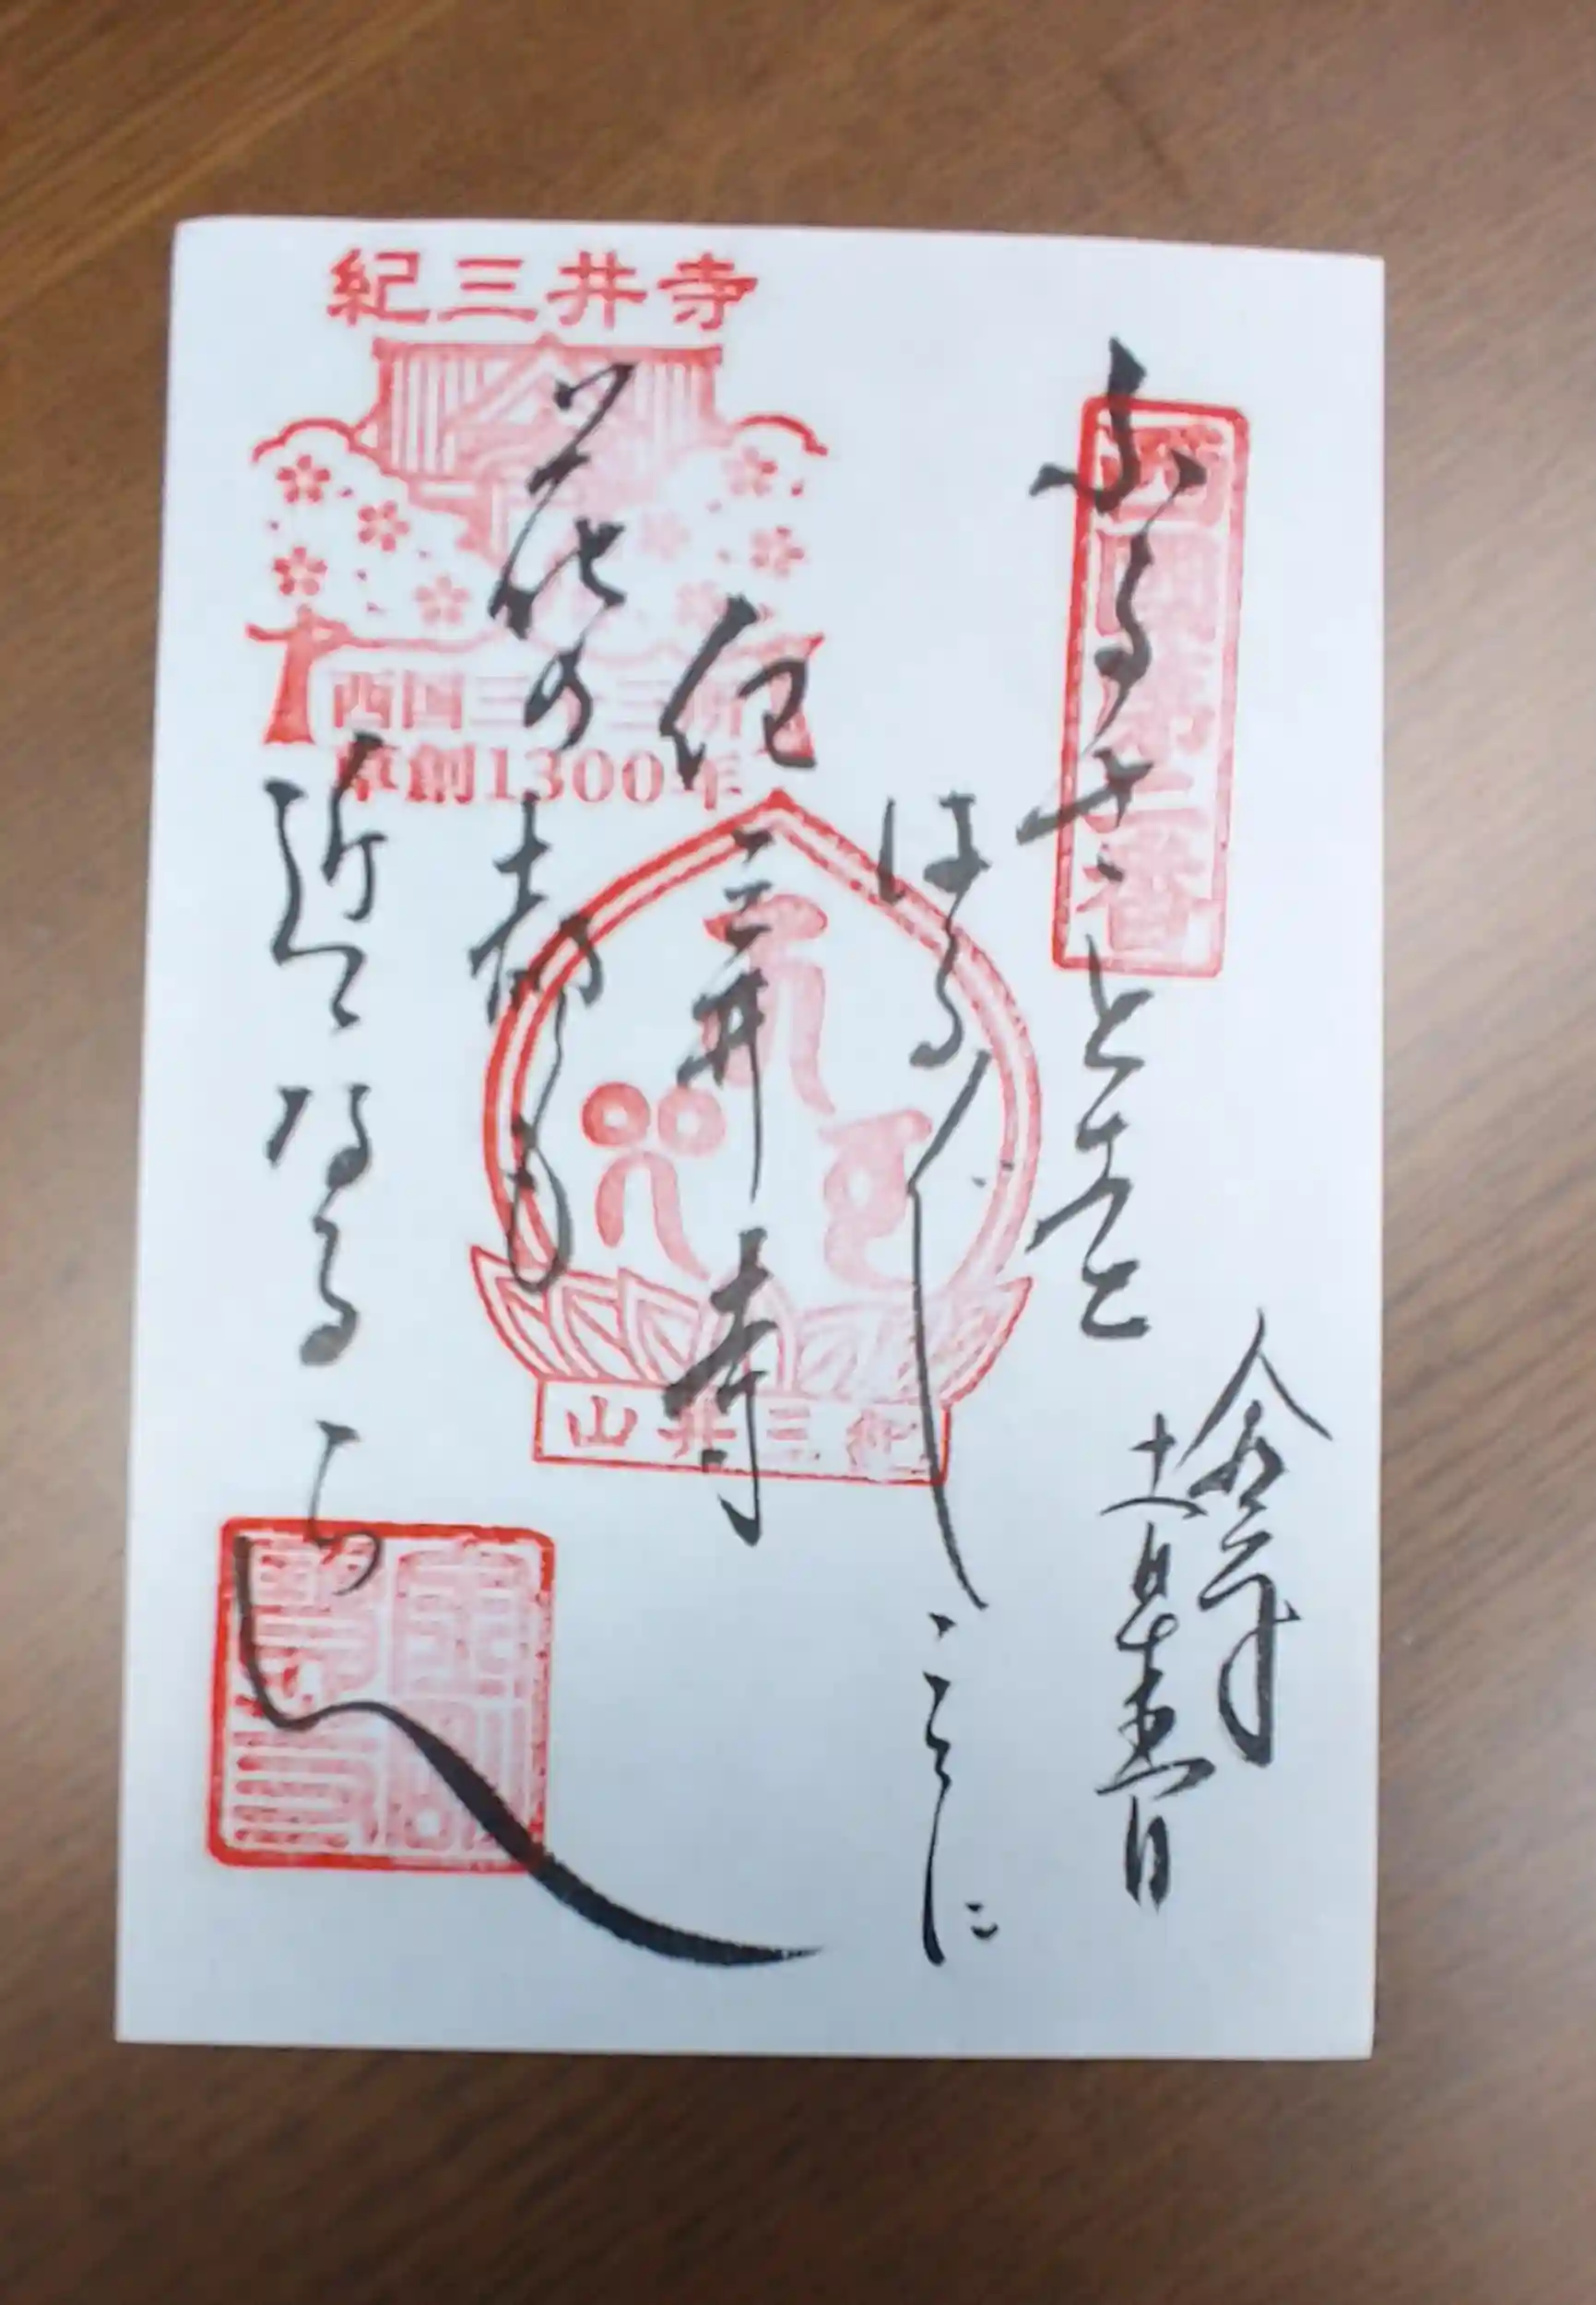 紀三井寺
西国三十三所
草創1300年
西国第二番
ふるさとを
はる〲ここに
紀三井寺
花の都も
近くなるらん
紀三井山